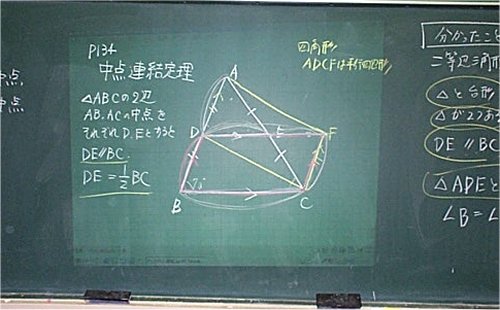 中点
中点
P134
中点連結定理
△ABCの2辺
AB、ACの中点を
それぞれD、Eとすると
DE∥BC
DE=1/2BC
四角形
ADCFは平行四辺形
A
D
E
F
B
C
分かったこと
二等辺三角形
△と台形
△が2つある
DE∥BC
△ADEと
∠B=∠